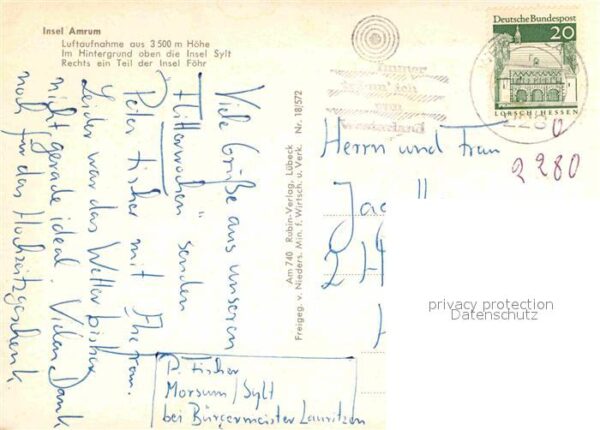 Insel Amrum
Luftaufnahme aus 3500 m Höhe
Im Hintergrund oben die Insel Sylt
Rechts ein Teil der Insel Föhr
Viele Grüße aus unseren
"Flitterwochen" senden
Peter Fischer mit Ehefrau.
Leider war das Wetter bisher
nicht gerade ideal. Vielen Dank
noch für das Hochzeitsgeschenk.
P. Fischer
Morsum/Sylt
bei Bürgermeister Lauritzen
Am 740 Rubin-Verlag, Lübeck
Freigeg. v. Nieders. Min. f. Wirtsch. u. Verk. Nr. 18/572
Immer
wenn
Westerland
Deutsche Bundespost
20
LORSCH/HESSEN
2280
2280
Herrn und Frau
privacy protection
Datenschutz